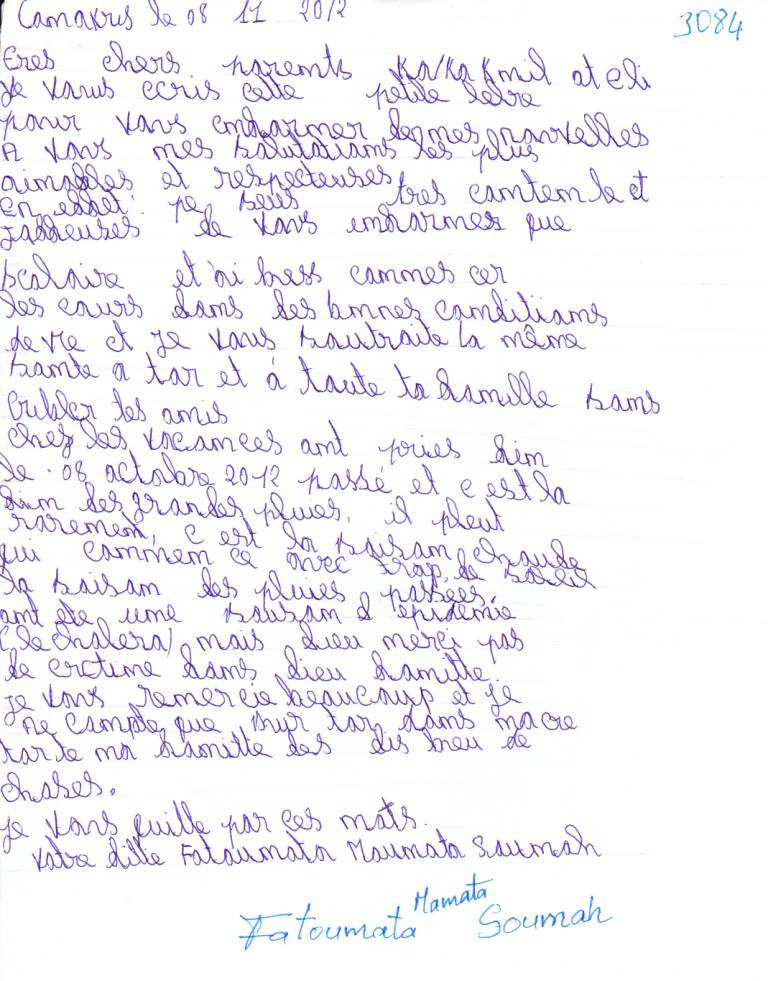 Camakris le 08 11 2012
3084
Eres chers parents Ka/Ka Kmil at eli
Je vous ecris cette petite letre
pour vous emdarmer de mes nauvelles
A vous mes salutatiams les plus
aimables et respecteuses
En effet: je suis tres camtemte et
de vous emdarmer que
scalaire et ai bass cammes cer
les cours dams des bonnes camditiams
de vie et je vous sautraite la même
samte a tar et à taute ta familla sams
les amis
Chez les vacamces amt pries dim
le 08 actobre 2012 passé et c est la
dim des grandes pluies, il pleut
rarement, c est la saisam chaude
qui cammem ce avec trap de saleil
la saisam des pluies passées
amt ete ume saisam d'epidemie
(le chalera) mais dieu merci pas
de dams dieu familla.
je vous remercie beaucaup et je
ne campte que sur tar dams macre
tarte ma familla des dis de
chases.
je vous quille par ces mats.
vatre dille Fataumata Maumata Saumah
Mamata
Fatoumata Soumah